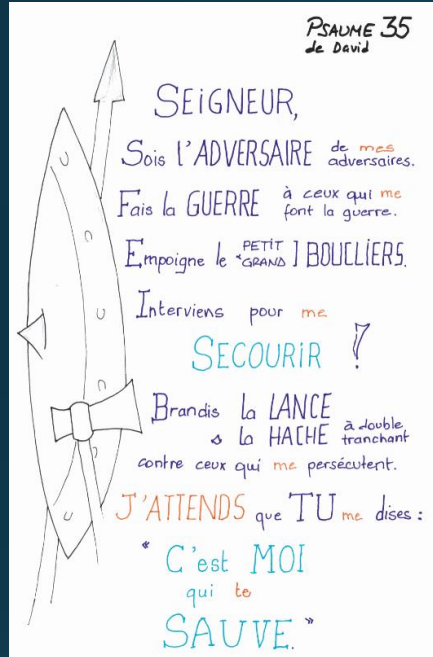 PSAUME 35
de David
SEIGNEUR,
Sois l'ADVERSAIRE de mes adversaires.
Fais la GUERRE à ceux qui me font la guerre.
Empoigne le PETIT & GRAND ] BOUCLIERS.
Interviens pour me
SECOURIR !
Brandis la LANCE
& la HACHE à double tranchant
contre ceux qui me persécutent.
J'ATTENDS que TU me dises :
" C'est MOI
qui te
SAUVE. "